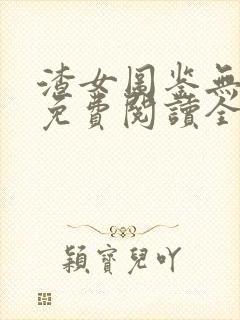 渣女圖鉴無
免費閱讀全
穎寶兒吖